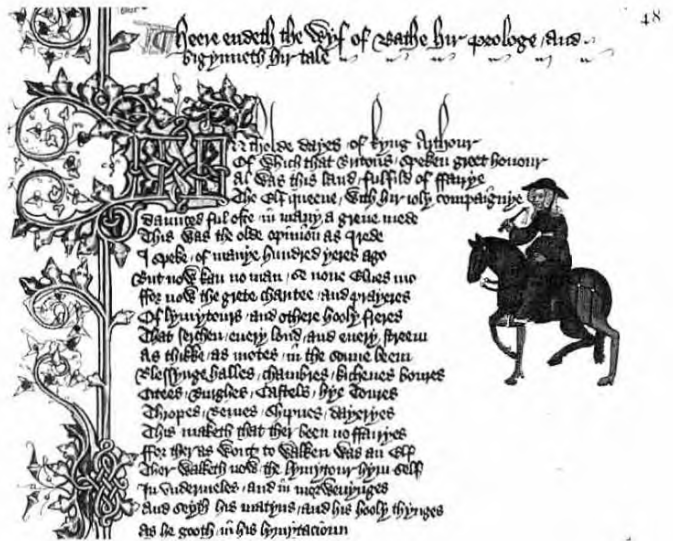 48
Heere endeth the Wyf of Bathe hir prologe and
bigynneth hir tale
In tholde dayes of kyng Arthour
Of which that Britons speken greet honour
Al was this land fulfild of ffairye
The Elf queene with hir ioly compaignye
Daunced ful ofte in many a grene mede
This was the olde opinion as I rede
I speke of manye hundred yeres ago
But now kan no man se none Elues mo
ffor now the grete charitee and prayeres
Of lymytours and othere hooly freres
That serchen euery lond and euery streem
As thikke as motes in the sonne beem
Blessynge halles chambres kichenes boures
Citees Burghes Castels hye Toures
Thropes Bernes Shipnes dayeryes
This maketh that ther been no ffairyes
ffor ther as wont to walken was an Elf
Ther walketh now the lymytour hym self
In vndermeles and in morwenynges
And seyth his matyns and his hooly thynges
As he gooth in his lymytacioun